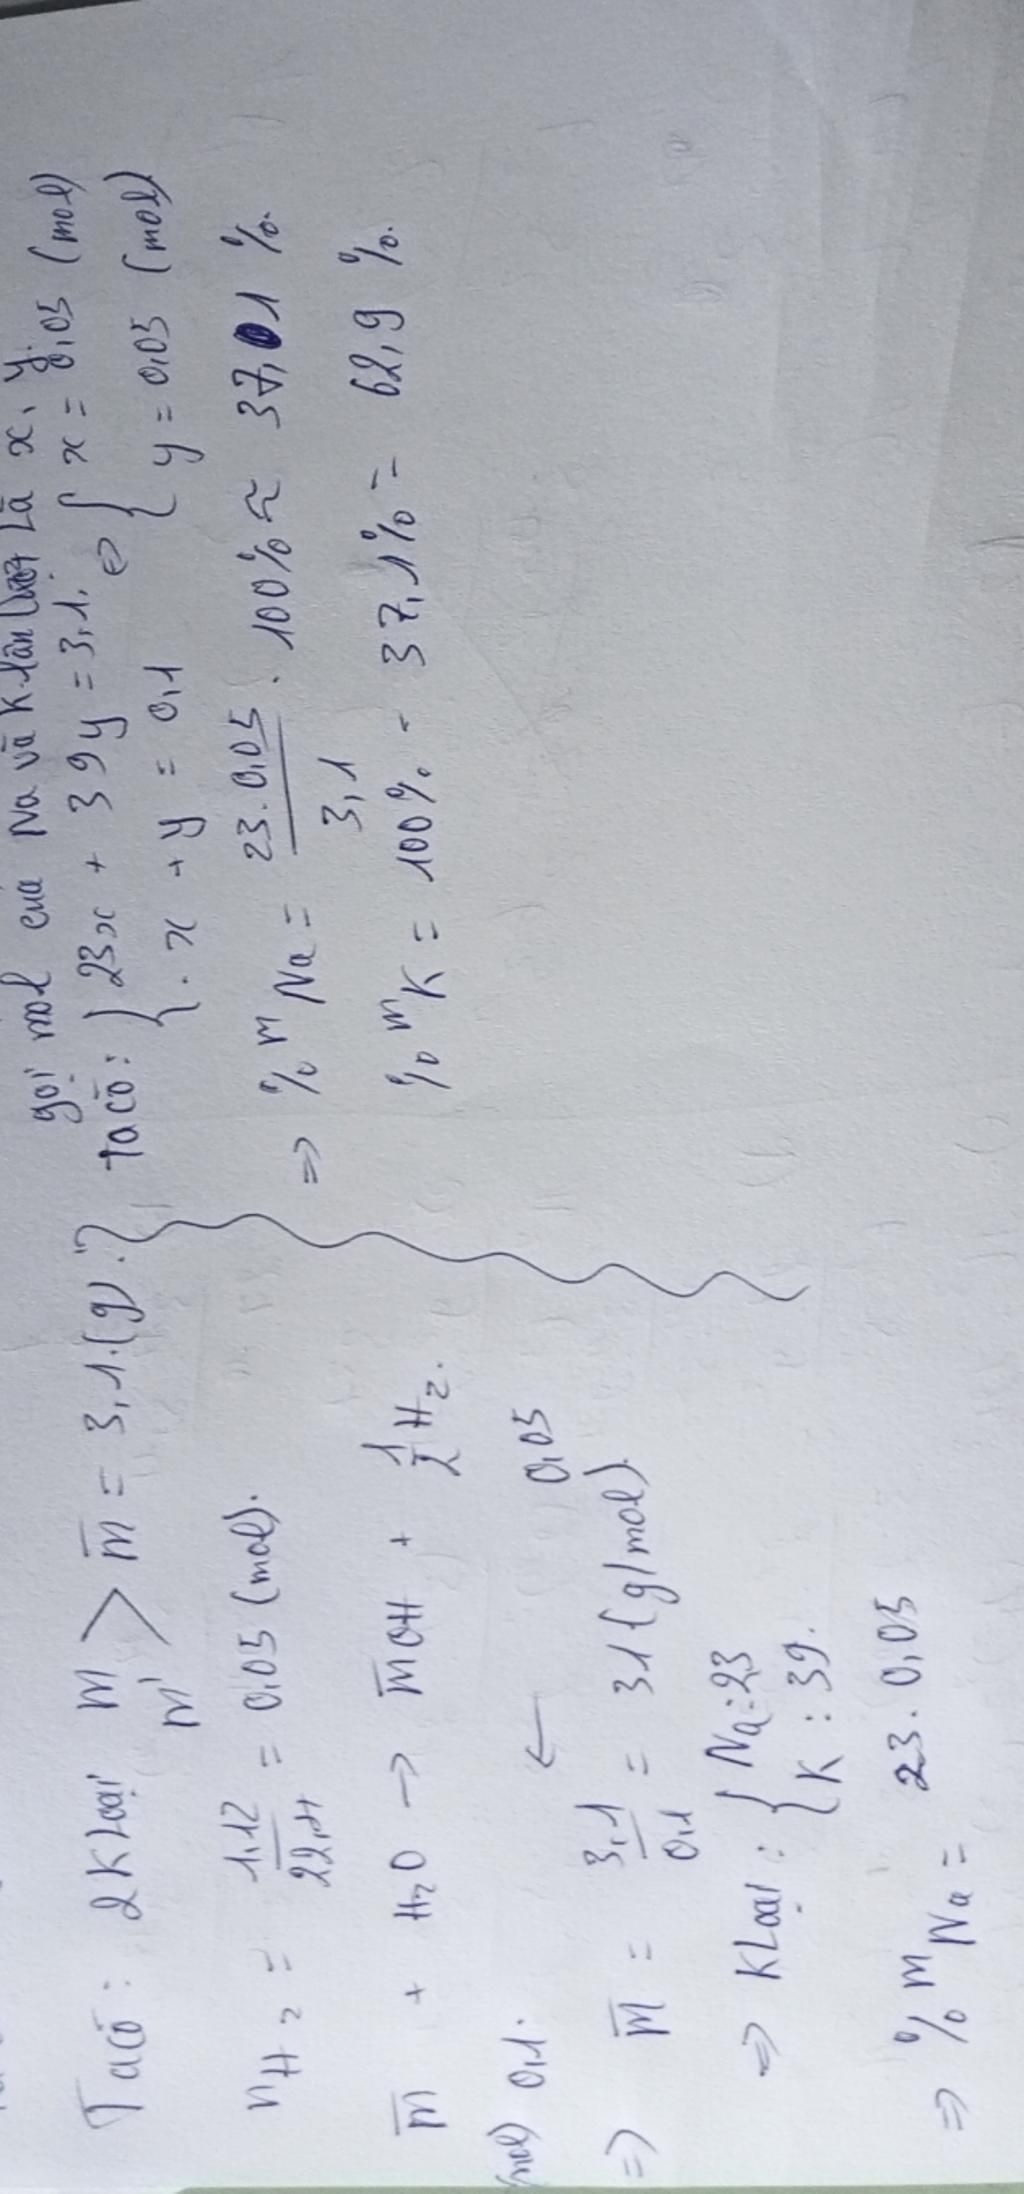 Ta có: 2 K Loại M
M' > M̅ = 3,1.(g).
nH2 = 1,12/22,4 = 0,05 (mol).
M̅ + H2O → M̅OH + 1/2 H2.
(mol) 0,1. ← 0,05
=> M̅ = 3,1/0,1 = 31 (g/mol).
=> KLoại : { Na: 23
K : 39.
=> % mNa = 23. 0,05
gọi mol của Na và K lần lượt là x, y.
ta có: { 23x + 39y = 3,1. <=> { x = 0,05 (mol)
. x + y = 0,1 y = 0,05 (mol)
=> % mNa = 23.0,05/3,1 . 100% ≈ 37,1 %.
% mK = 100% - 37,1% = 62,9 %.